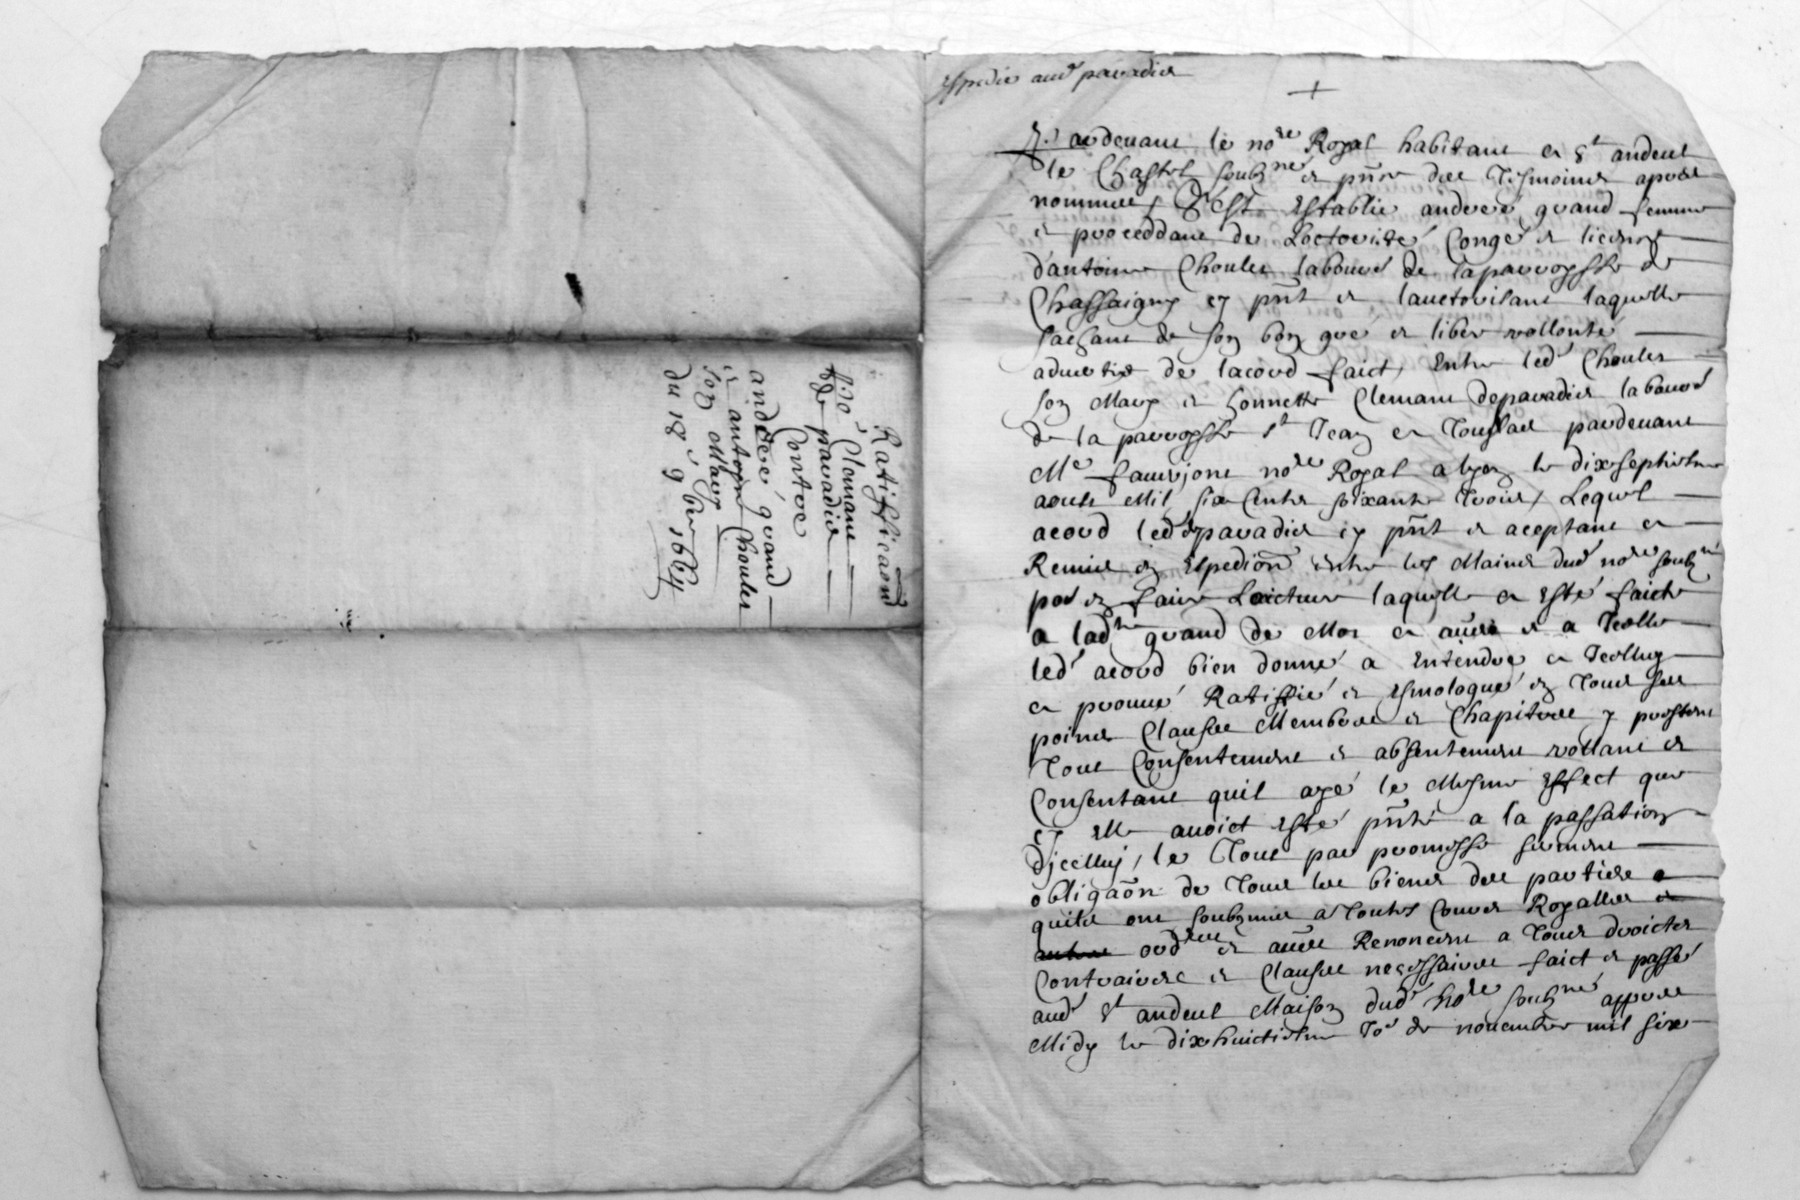 Ratifficaõn
po.r Clemant
de pavadier
Contre
andreé grand
et antoyne Choulet
son Mary
du 18e 9bre 1664
Expedie aud.t pavadier
+
Pardevant le no.re Royal habitant a S.t andeul
le Chastel soubz.né et p̃ns des Tesmoins apres
nommes, S'est Establie andreé grand femme
et proceddant de Loctorité Congé et licence
d'antoine Choulet laboure.r de la parroysse de
Chassaigny cy p̃nt et lauctorisant laquelle
sachant de son bon gré et libre vollonté
advertie de lacord faict, Entre led.t Choulet
son Mary et honneste Clemant depavadier laboure.r
de la parroysse S.t Jean a Touslas pardevant
M.e favrejont no.re Royal a lyon le dixseptiesme
aoust Mil six Cents soixante trois, Lequel
acord led.t de pavadier cy p̃nt et aceptant a
Remis en Expedion Entre les Mains dud.t no.re soubz.né
po.r en faire Loicture laquelle a esté faicte
a lad.te grand de Mot a autre et a Icelle
led.t acord bien donné a Entendre a Icelluy
a prouvé Ratiffié et Esmologué en tous ses
points Clauses Membres et Chapitres y prestant
tout Consentement et absentement voullant et
Consentant quil aye le Mesme Effect que
cy Elle avoict Esté p̃nte a la passation
dicelluj, le tout par promesse serment
obligaõn de tous les biens des parties
quils ont soubzmis a toutes Cours Royalles et
ord.res et autres Renoncent a tous droictz
Contraires et Clauses necessaires faict et passé
aud.t S.t andeul Maison dud.t no.re soubz.né appres
Midy le dixhuictiesme Jo.r de novembre mil six